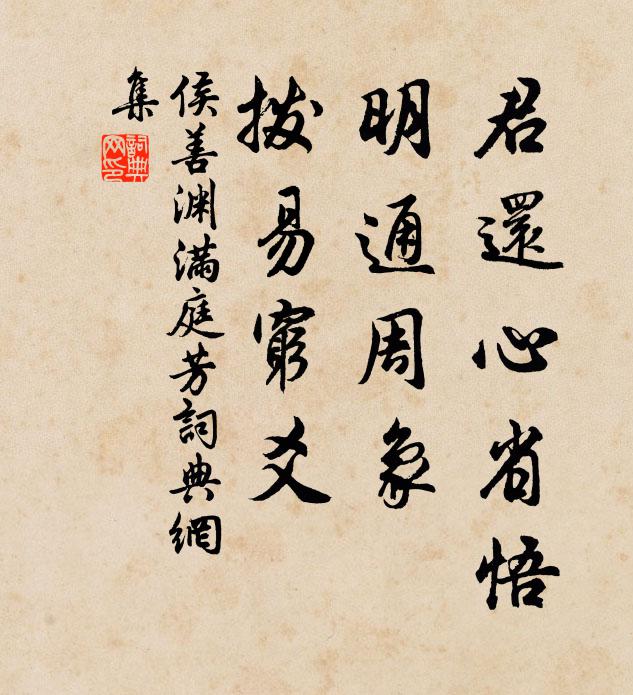 君還心省悟
明通周象
拨易窮爻
侯善渊满庭芳詞典網
集
詞典
网印